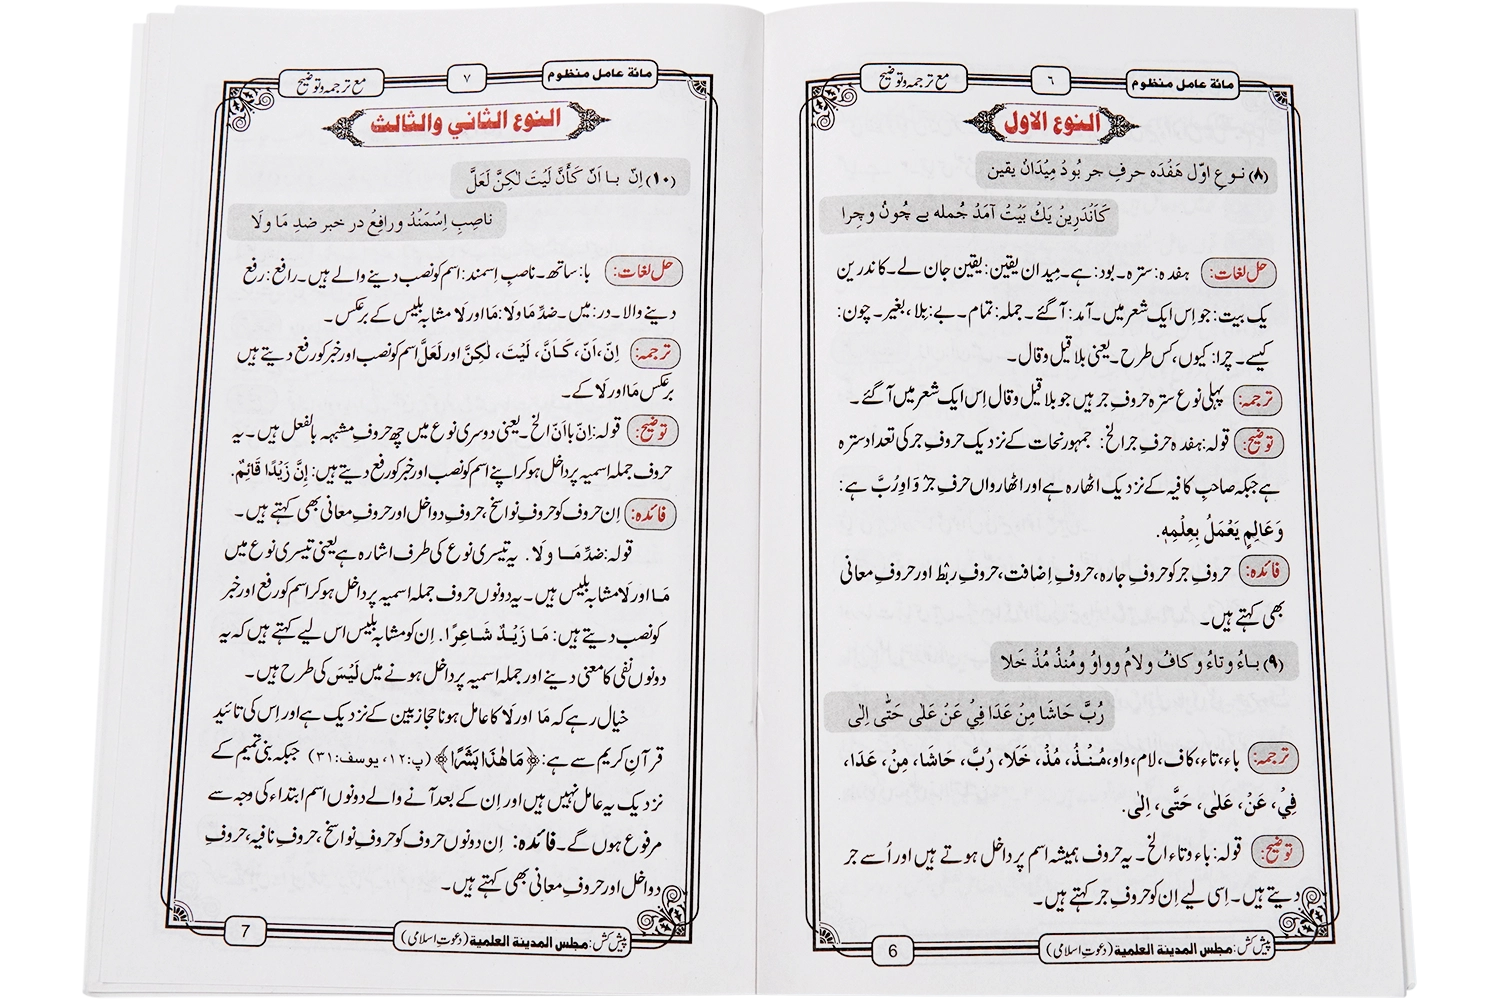 مائة عامل منظوم
٦
مع ترجمه وتوضیح
النوع الاول
(۸) نوعِ اوّل هَفْدَه حرفِ جر بُودْ مِیْدَانْ یقین
کَانْدَرِینْ یَكْ بَیْتْ آمَدْ جُمله بے چُونْ وچرا
حل لغات: ہفدہ: سترہ۔ بود: ہے۔ میدان یقین: یقین جان لے۔ کاندرین
یک بیت: جو اِس ایک شعر میں۔ آمد: آ گئے۔ جملہ: تمام۔ بے: بِلا، بغیر۔ چون:
کیسے۔ چرا: کیوں، کس طرح۔ یعنی بلا قیل وقال۔
ترجمہ: پہلی نوع سترہ حروفِ جر ہیں جو بلا قیل وقال اِس ایک شعر میں آ گئے۔
توضیح: قولہ: ہفدہ حرفِ جر الخ: جمہور نحات کے نزدیک حروفِ جر کی تعداد سترہ
ہے جبکہ صاحبِ کافیہ کے نزدیک اٹھارہ ہے اور اٹھارواں حرفِ جر وَاوِ رُبَّ ہے:
وَعَالِمٍ یَعْمَلُ بِعِلْمِہٖ.
فائدہ: حروفِ جر کو حروفِ جارہ، حروفِ اِضافت، حروفِ ربْط اور حروفِ معانی
بھی کہتے ہیں۔
(۹) بـاءْ وتاءْ و کافْ ولامْ وواوْ ومُنْذُ مُذْ خَلَا
رُبَّ حَاشَا مِنْ عَدَا فِيْ عَنْ عَلٰی حَتّٰی اِلٰی
ترجمہ: باء، تاء، کاف، لام، واو، مُـنْـذُ، مُذْ، خَلَا، رُبَّ، حَاشَا، مِنْ، عَدَا،
فِيْ، عَنْ، عَلٰی، حَتّٰی، اِلٰی.
توضیح: قولہ: باء وتاء الخ۔ یہ حروف ہمیشہ اسم پر داخل ہوتے ہیں اور اُسے جر
دیتے ہیں۔ اِسی لیے اِن کو حروفِ جر کہتے ہیں۔
پیش کش: مجلس المدينة العلمية (دعوتِ اسلامی)
6
مائة عامل منظوم
٧
مع ترجمه وتوضیح
النوع الثاني والثالث
(۱۰) اِنّ بـا اَنّ کَأَنَّ لَیْتَ لٰکِنَّ لَعَلَّ
ناصِبِ اِسْمَنْدْ ورافِعْ در خبر ضدِ مَا ولَا
حل لغات: با: ساتھ۔ ناصبِ اِسمند: اسم کو نصب دینے والے ہیں۔ رافع: رفع
دینے والا۔ در: میں۔ ضدِّ مَا ولَا: مَا اور لَا مشابہ بلیس کے برعکس۔
ترجمہ: اِنّ، اَنّ، کَـاَنَّ، لَیْتَ، لٰکِنَّ اور لَعَلَّ اسم کو نصب اور خبر کو رفع دیتے ہیں
برعکس مَا اور لَا کے۔
توضیح: قولہ: اِنّ با اَنّ الخ۔ یعنی دوسری نوع میں چھ حروفِ مشبہہ بالفعل ہیں۔ یہ
حروف جملہ اسمیہ پر داخل ہو کر اپنے اسم کو نصب اور خبر کو رفع دیتے ہیں: اِنَّ زَیْدًا قَائِمٌ.
فائدہ: اِن حروف کو حروفِ نواسخ، حروفِ دواخل اور حروفِ معانی بھی کہتے ہیں۔
قولہ: ضدِّ مَـا ولَا. یہ تیسری نوع کی طرف اشارہ ہے یعنی تیسری نوع میں
مَا اور لَا مشابہ بلیس ہیں۔ یہ دونوں حروف جملہ اسمیہ پر داخل ہو کر اسم کو رفع اور خبر
کو نصب دیتے ہیں: مَا زَیْدٌ شَاعِرًا. اِن کو مشابہ بلیس اس لیے کہتے ہیں کہ یہ
دونوں نفی کا معنی دینے اور جملہ اسمیہ پر داخل ہونے میں لَیْسَ کی طرح ہیں۔
خیال رہے کہ مَا اور لَا کا عامل ہونا حجازیین کے نزدیک ہے اور اِس کی تائید
قرآنِ کریم سے ہے: ﴿مَا هٰذَا بَشَرًا﴾ (پ:۱۲، یوسف:۳۱) جبکہ بنی تمیم کے
نزدیک یہ عامل نہیں ہیں اور اِن کے بعد آنے والے دونوں اسم ابتداء کی وجہ سے
مرفوع ہوں گے۔ فائدہ: اِن دونوں حروف کو حروفِ نواسخ، حروفِ نافیہ، حروفِ
دواخل اور حروفِ معانی بھی کہتے ہیں۔
پیش کش: مجلس المدينة العلمية (دعوتِ اسلامی)
7